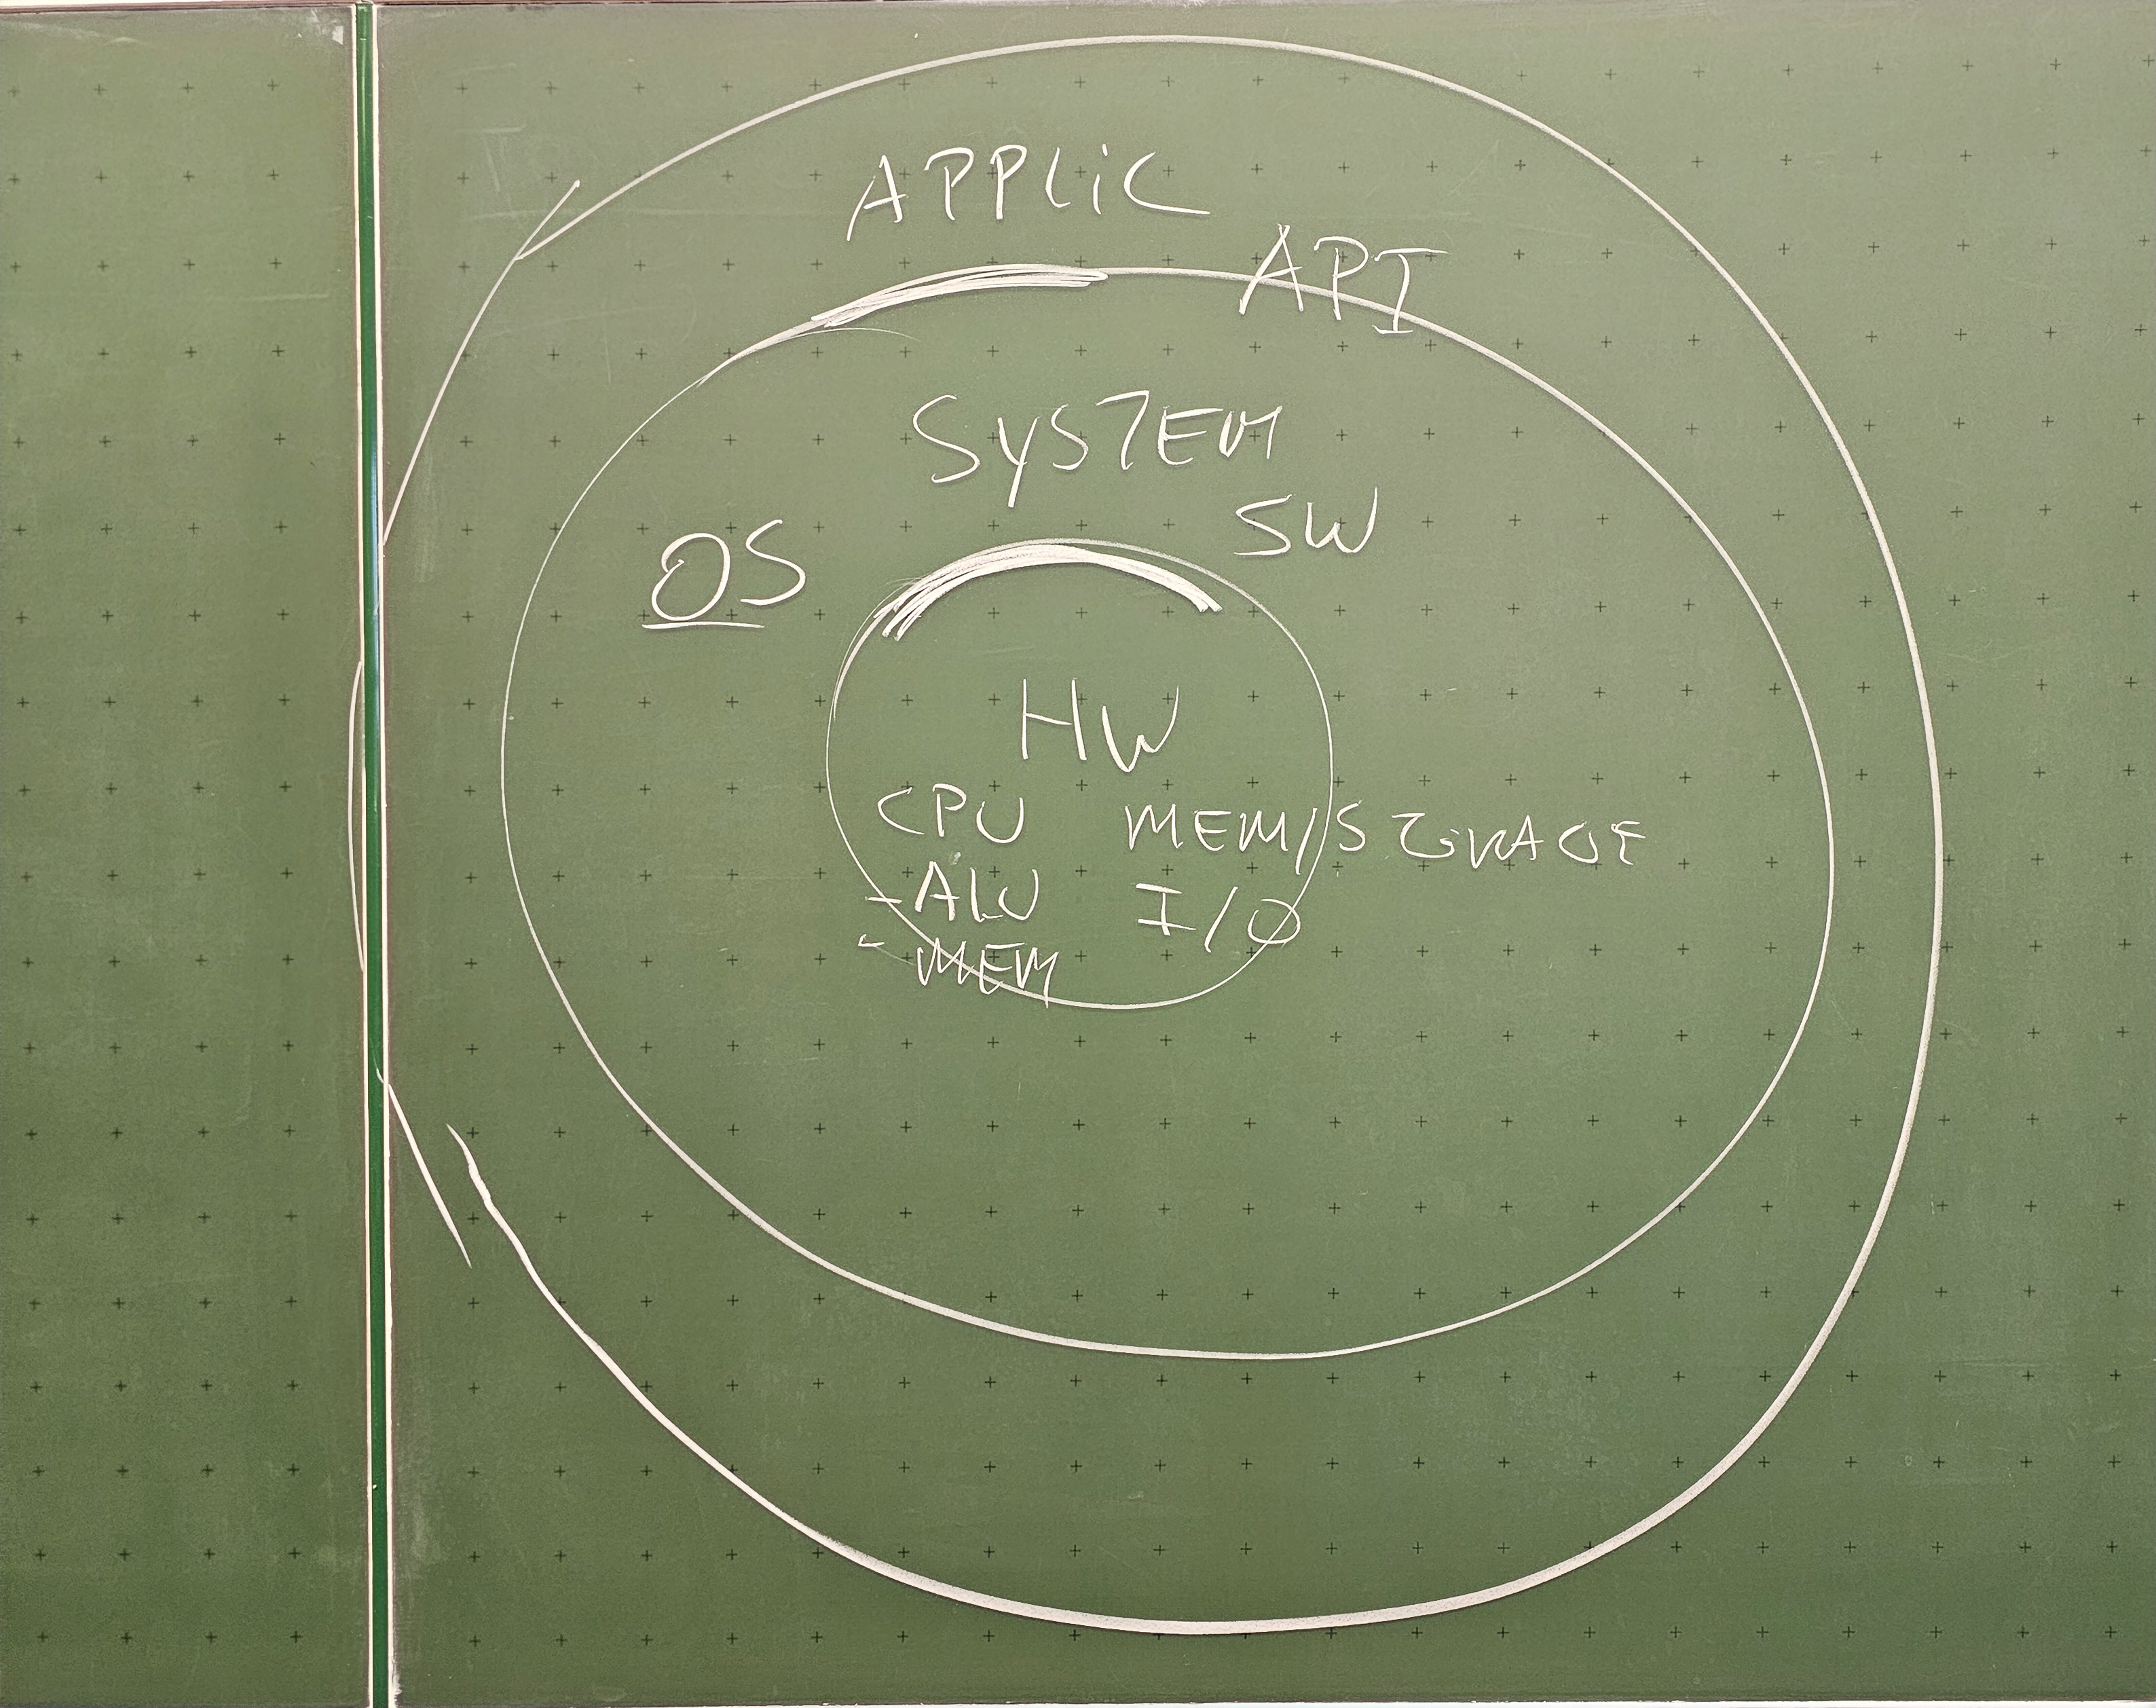 APPLiC
API
SYSTEM
SW
OS
HW
CPU MEM/STORAGE
-ALU I/O
- MEM